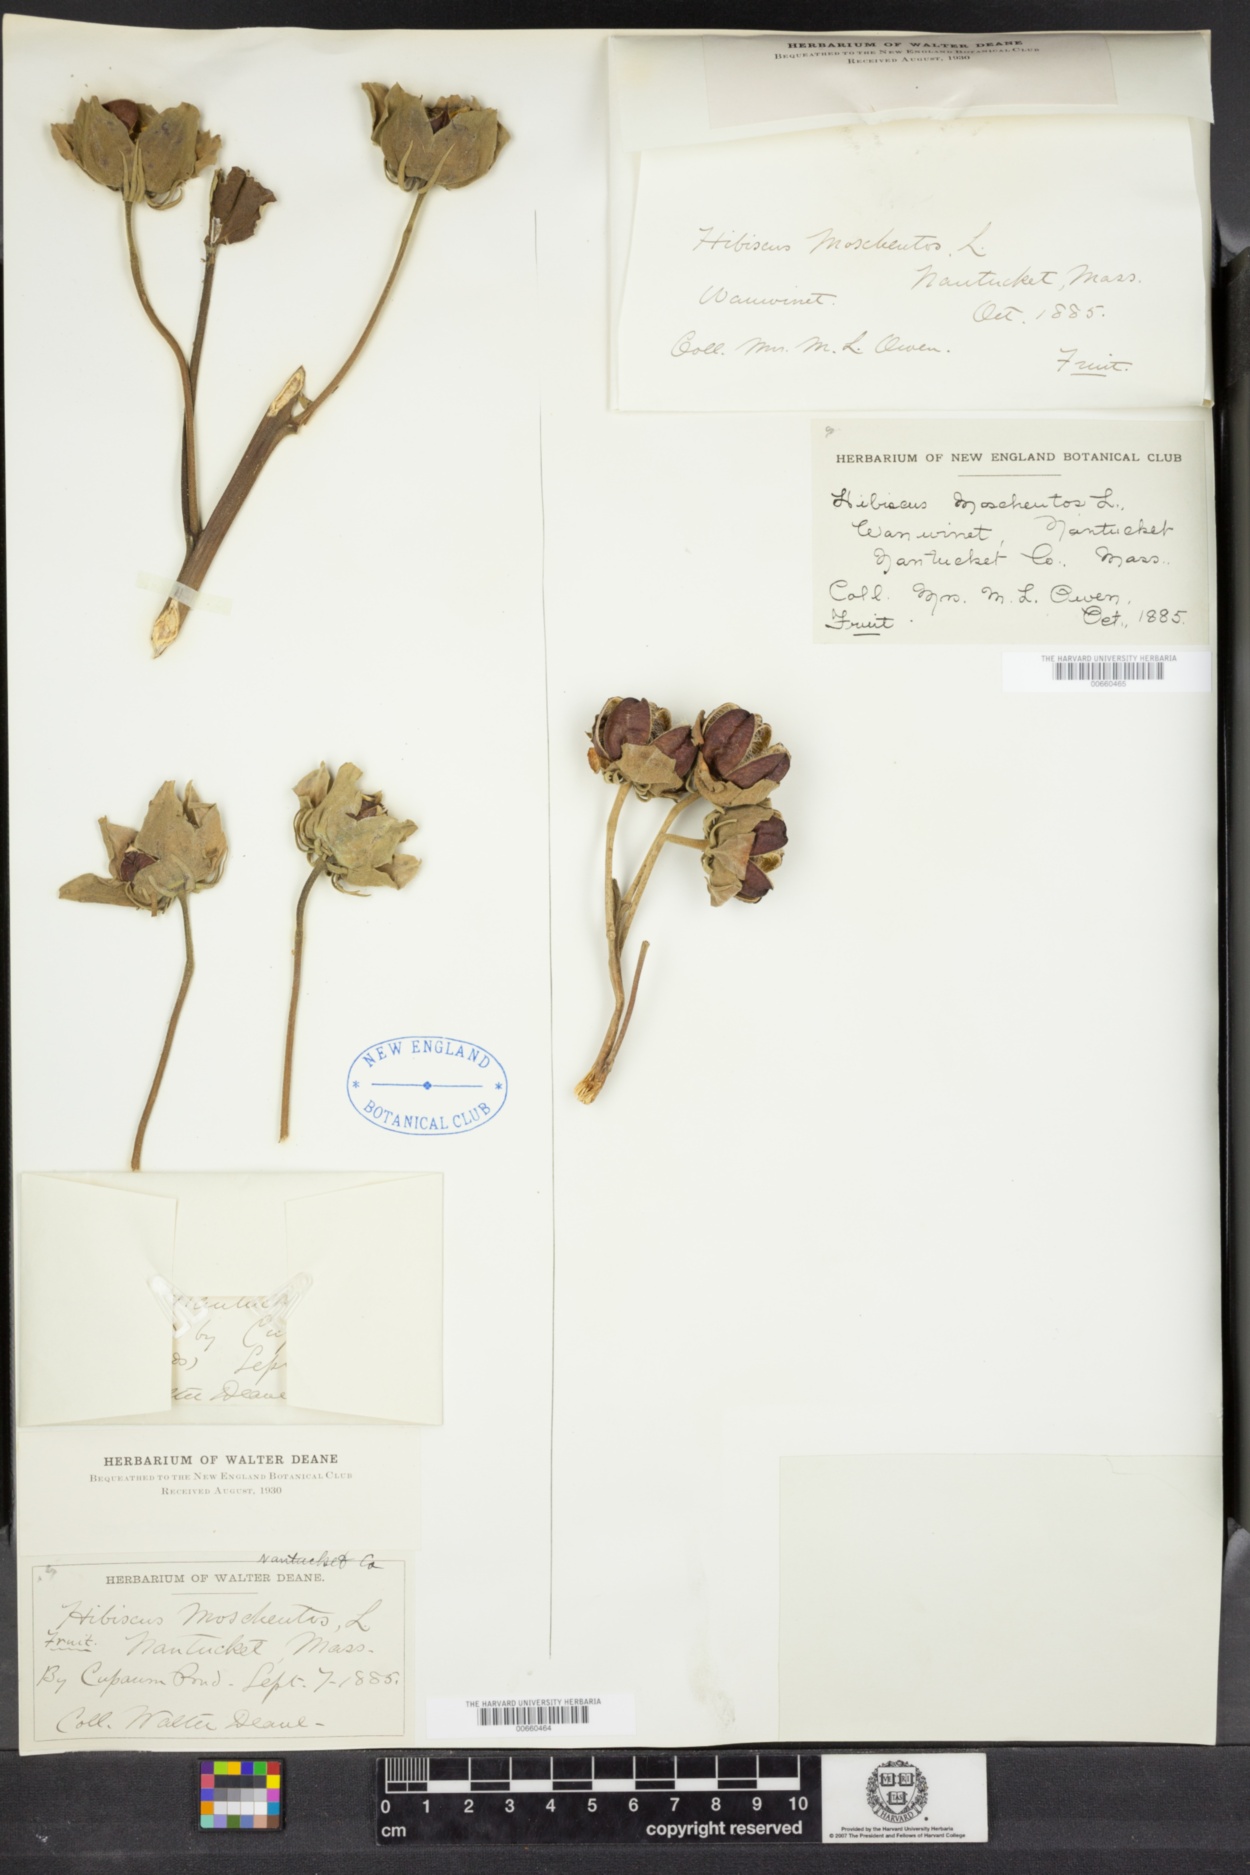 HERBARIUM OF WALTER DEANE
BEQUEATHED TO THE NEW ENGLAND BOTANICAL CLUB
RECEIVED AUGUST, 1930
Hibiscus Moscheutos, L.
Nantucket, Mass.
Wauwinet.
Oct. 1885.
Coll. Mrs. M. L. Owen.
Fruit.
HERBARIUM OF NEW ENGLAND BOTANICAL CLUB
Hibiscus Moscheutos L.,
Wauwinet, Nantucket
Nantucket Co., Mass.
Coll. Mrs. M. L. Owen.
Fruit. Oct., 1885.
THE HARVARD UNIVERSITY HERBARIA
00660465
NEW ENGLAND
BOTANICAL CLUB
Nantuck
by Cu
Sep
lter Deane
HERBARIUM OF WALTER DEANE
BEQUEATHED TO THE NEW ENGLAND BOTANICAL CLUB
RECEIVED AUGUST, 1930
Nantucket Co
HERBARIUM OF WALTER DEANE.
Hibiscus Moscheutos, L
Fruit. Nantucket, Mass.
By Cupaum Pond - Sept. 7-1885.
Coll. Walter Deane -
THE HARVARD UNIVERSITY HERBARIA
00660464
0 1 2 3 4 5 6 7 8 9 10
cm copyright reserved
HARVARD
Provided by the Harvard University Herbaria
© 2007 The President and Fellows of Harvard College